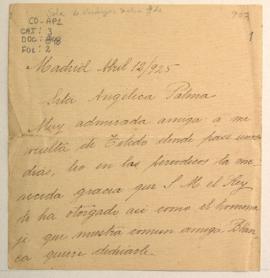 CO-AP1
CAJ: 3
DOC:
FOL: 2
903
1
Madrid Abril 12/925
Srta Angélica Palma
Muy admirada amiga a mi
vuelta de Toledo donde pasé unos
dias, leo en los periodicos la me
recida gracia que S M el Rey
le ha otorgado asi como el homena
je que nuestra comun amiga Blan
ca quiere dedicarle.